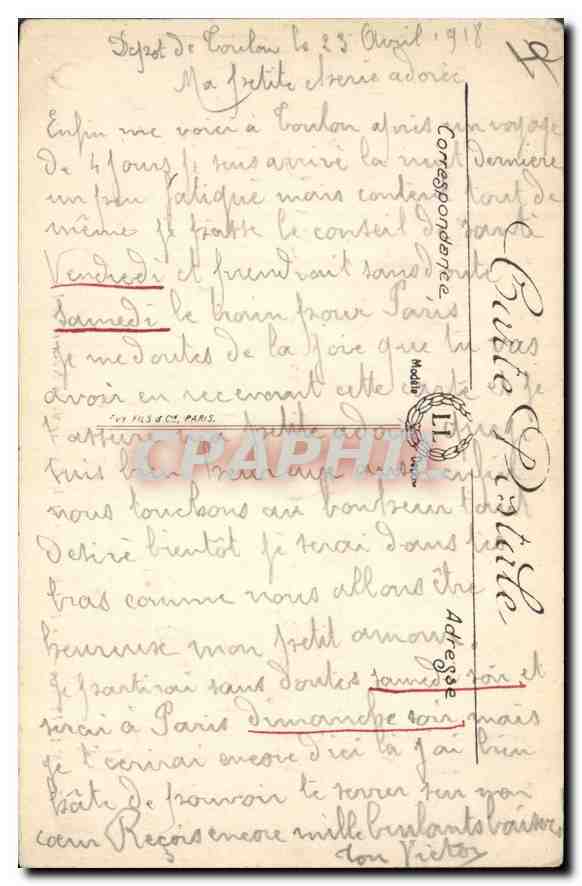 Depot de Toulon le 23 Avril 1918
Ma petite cherie adorée
Enfin me voici à Toulon après un voyage
de 4 jours je suis arrivé la nuit derniere
un peu fatigué mais content tout de
même je passe le conseil de santé
Vendredi et prendrait sans doute
Samedi le train pour Paris
je me doutes de la joie que tu vas
avoir en recevant cette carte et je
t'assure ma petite adorée que je
suis bien heureux aussi enfin
nous touchons au bonheur tant
desiré bientôt je serai dans tes
bras comme nous allons être
heureuse mon petit amour.
Je partirai sans doutes samedi soir et
serai à Paris dimanche soir, mais
je t'ecrirai encore d'ici là j'ai bien
hâte de pouvoir te serrer sur mon
cœur Reçois encore mille brulants baisers
Ton Victor
Carte Postale
Correspondance
Adresse
Modèle
LL
LEVY FILS & Cie, PARIS.
CPAPHIL